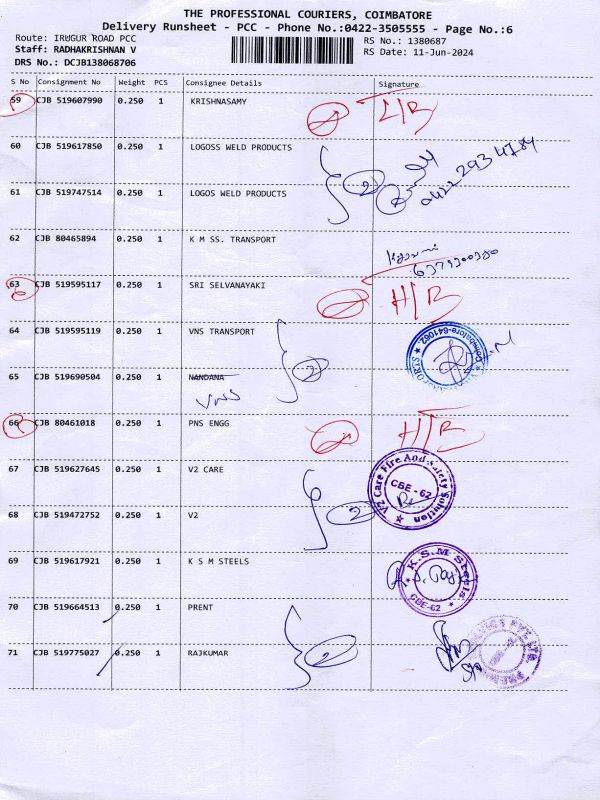 THE PROFESSIONAL COURIERS, COIMBATORE
Delivery Runsheet - PCC - Phone No.:0422-3505555 - Page No.:6
Route: IRUGUR ROAD PCC
RS No.: 1380687
Staff: RADHAKRISHNAN V
RS Date: 11-Jun-2024
DRS No.: DCJB138068706
S No Consignment No Weight PCS Consignee Details Signature
59 CJB 519607990 0.250 1 KRISHNASAMY
60 CJB 519617850 0.250 1 LOGOSS WELD PRODUCTS 2
0422 2934784
61 CJB 519747514 0.250 1 LOGOS WELD PRODUCTS
62 CJB 80465894 0.250 1 K M SS. TRANSPORT
63 CJB 519595117 0.250 1 SRI SELVANAYAKI H/B
64 CJB 519595119 0.250 1 VNS TRANSPORT
Coimbatore-641062
65 CJB 519690504 0.250 1 NANDANA 2
VNS
66 CJB 80461018 0.250 1 PNS ENGG H/B
67 CJB 519627645 0.250 1 V2 CARE
V2 Care Fire And Safety Solution
CBE - 62
68 CJB 519472752 0.250 1 V2 2
69 CJB 519617921 0.250 1 K S M STEELS
K.S.M Steels
CBE-62
70 CJB 519664513 0.250 1 PRENT
71 CJB 519775027 0.250 1 RAJKUMAR 2